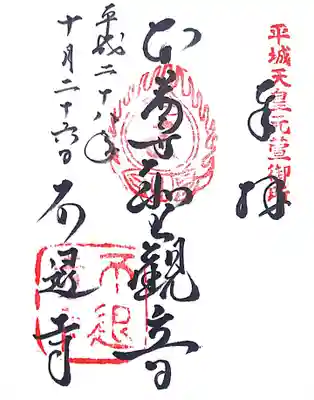 平城天皇元萱御所
奉拝
本尊聖観音
平成二十八年
十月二十六日
不退寺
不退